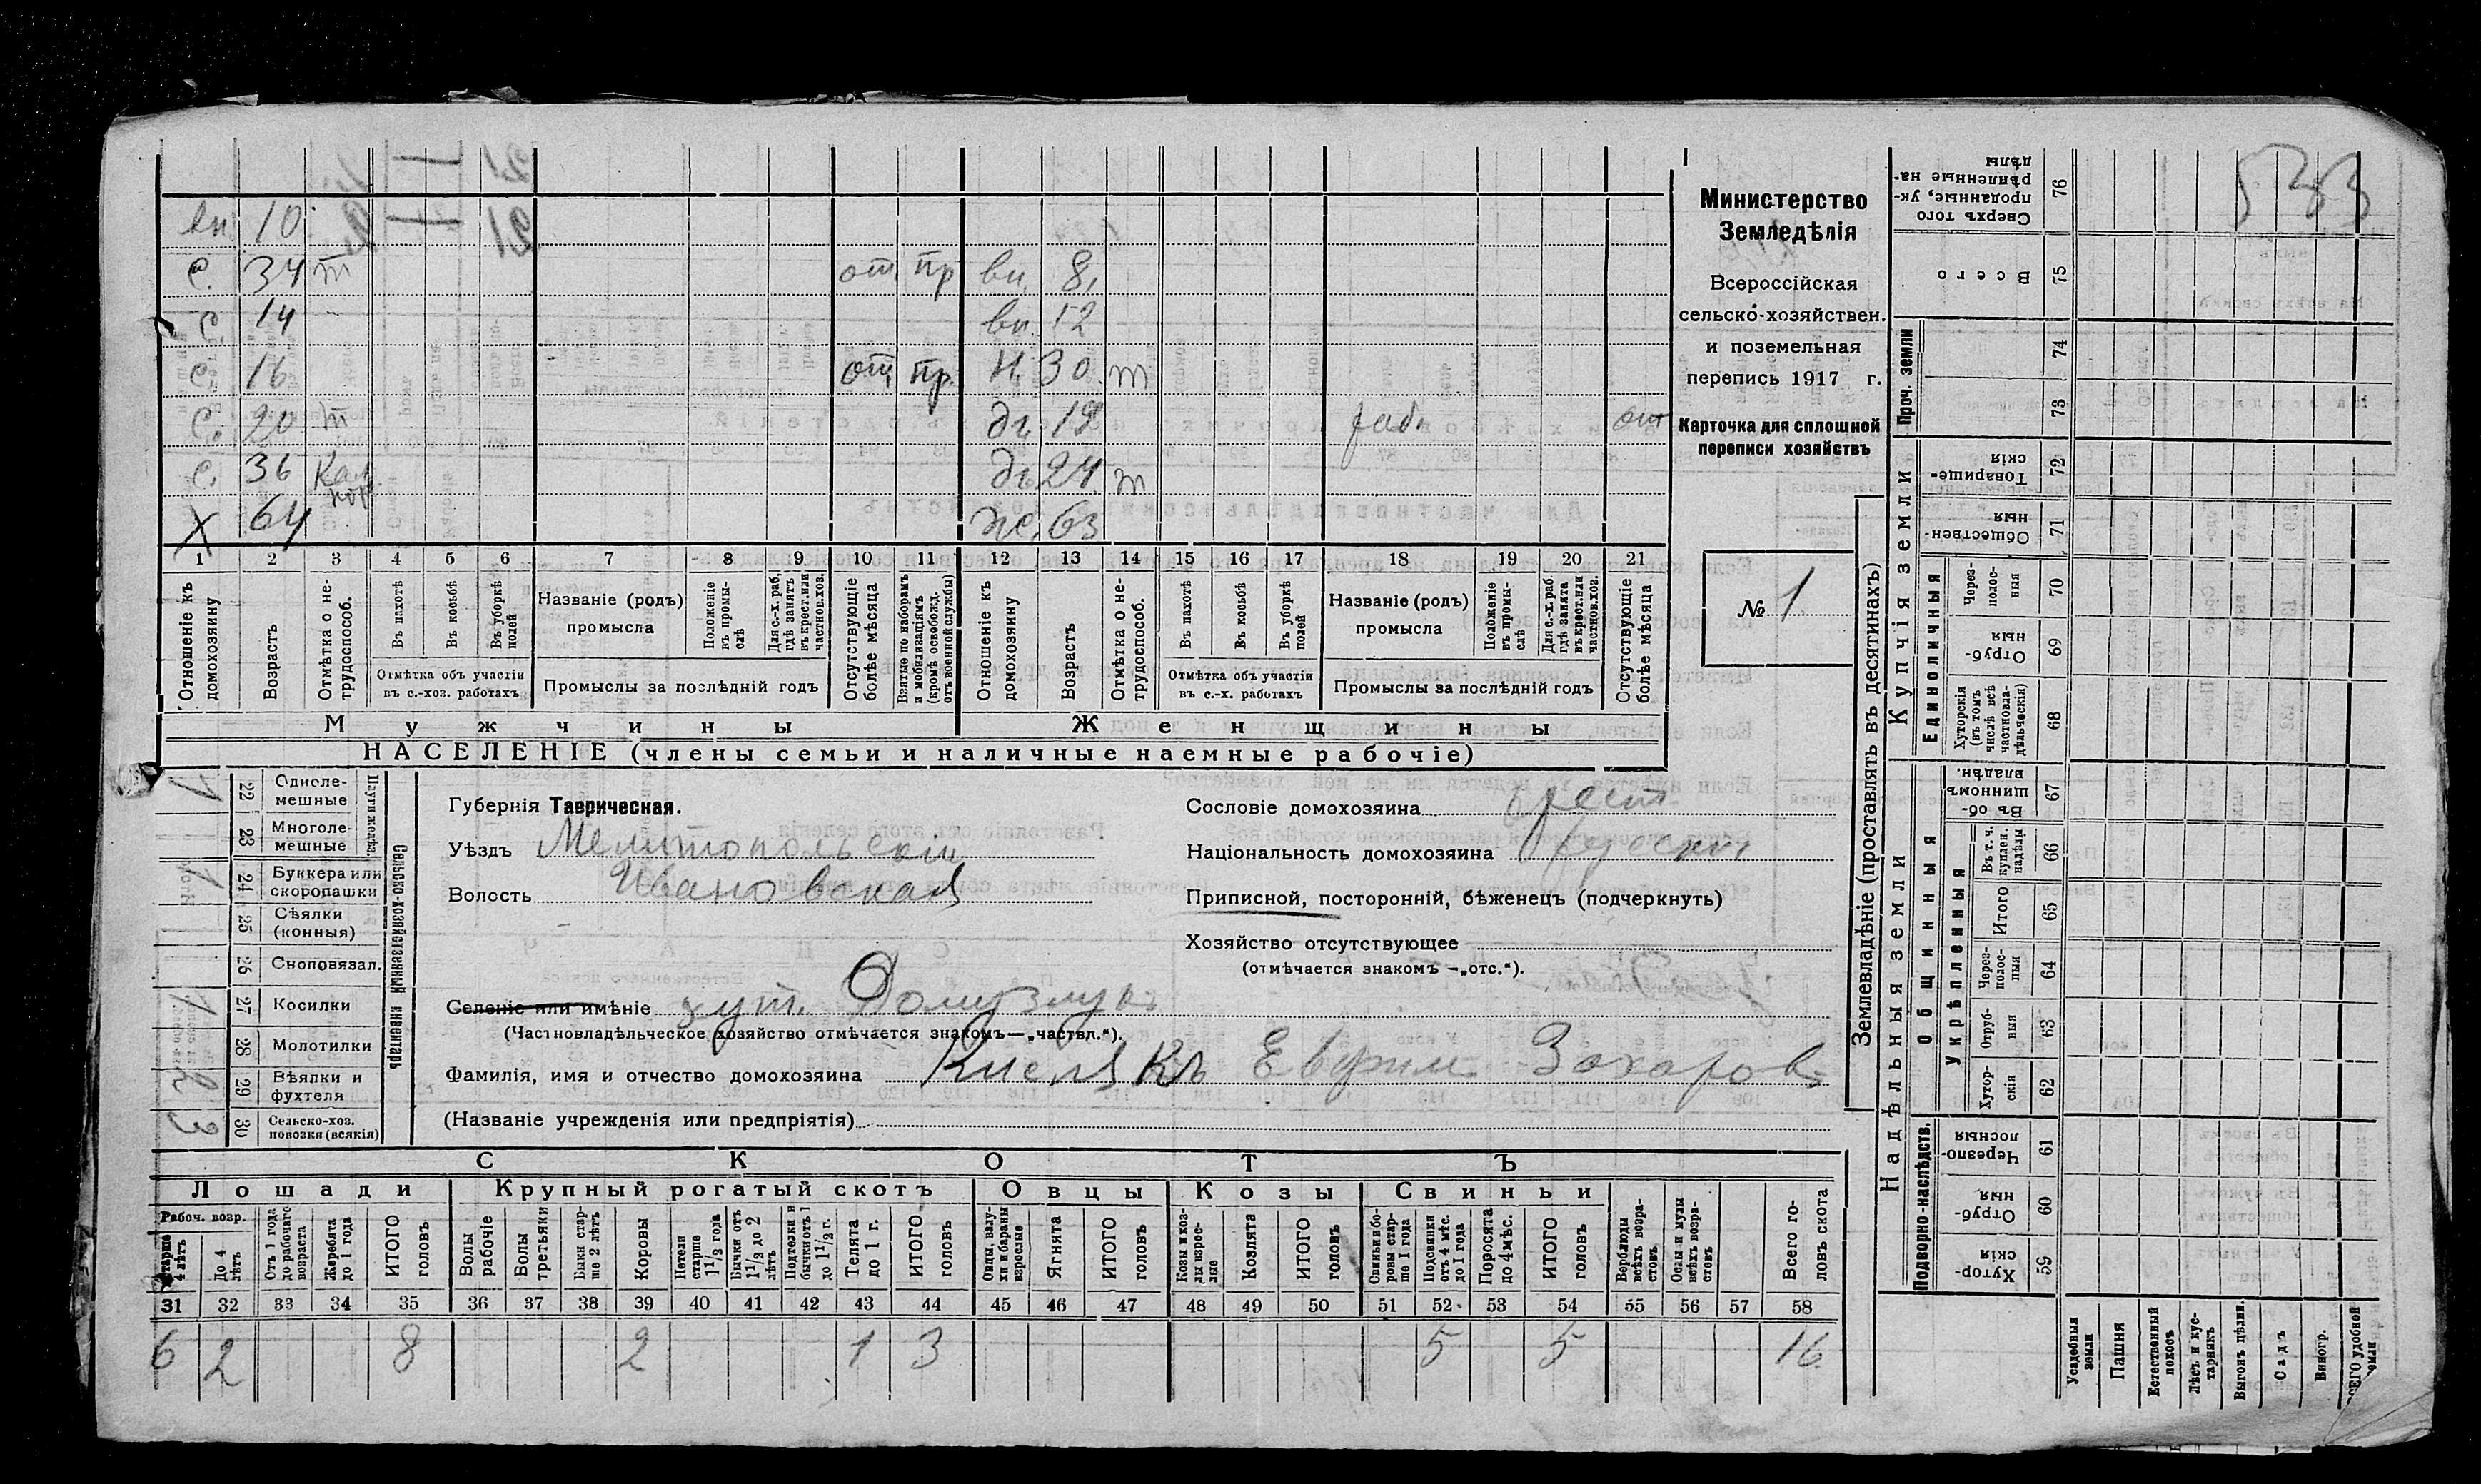 533
вн. 10
с. 34 т от пр вн. 8
с. 14 вн. 12
с. 16 от пр. н. 30 т
с. 20 т дч 19 раб. от
с. 36 Кал. дч 24 т
х 64 же. 63
1 2 3 4 5 6 7 8 9 10 11 12 13 14 15 16 17 18 19 20 21
Отношеніе къ домохозяину
Возрастъ
Отмѣтка о нетрудоспособ.
Въ пахотѣ
Въ косьбѣ
Въ уборкѣ полей
Отмѣтка объ участіи въ с.-хоз. работахъ
Названіе (родъ) промысла
Положеніе въ промыслѣ
Для с.-х. раб, гдѣ занятъ въ крест. или частнов. хоз.
Промыслы за послѣдній годъ
Отсутствующіе болѣе мѣсяца
Взятые по наборамъ и мобилизаціямъ (кромѣ освобожд. отъ военной службы)
Отношеніе къ домохозяину
Возрастъ
Отмѣтка о нетрудоспособ.
Въ пахотѣ
Въ косьбѣ
Въ уборкѣ полей
Отмѣтка объ участіи въ с.-х. работахъ
Названіе (родъ) промысла
Положеніе въ промыслѣ
Для с.-х. раб. гдѣ занята въ крест. или частнов. хоз.
Промыслы за послѣдній годъ
Отсутствующіе болѣе мѣсяца
Мужчины Женщины
НАСЕЛЕНІЕ (члены семьи и наличные наемные рабочіе)
Министерство
Земледѣлія
Всероссійская
сельско-хозяйствен.
и поземельная
перепись 1917 г.
Карточка для сплошной
переписи хозяйствъ
№ 1
Сельско-хозяйственный инвентарь
Плуги желѣз.
22 Однолемешные 1
23 Многолемешные
24 Буккера или скоропашки 1
25 Сѣялки (конныя)
26 Сноповязал.
27 Косилки 1
28 Молотилки
29 Вѣялки и фухтеля
30 Сельско-хоз. повозки (всякія) 3
Губернія Таврическая.
Уѣздъ Мелитопольскій
Волость Ивановская
Сословіе домохозяина крест.
Національность домохозяина русскій
Приписной, посторонній, бѣженецъ (подчеркнуть)
Хозяйство отсутствующее
(отмѣчается знакомъ —„отс.“).
Селеніе или имѣніе хут. Домузлук
(Частновладѣльческое хозяйство отмѣчается знакомъ—„частвл.“).
Фамилія, имя и отчество домохозяина Кисляк Ефрим Захаров
(Названіе учрежденія или предпріятія)
СКОТЪ
Лошади Крупный рогатый скотъ Овцы Козы Свиньи
Рабоч. возр.
Старше 4 лѣтъ
До 4 лѣтъ
Отъ 1 года до рабочаго возраста
Жеребята до 1 года
ИТОГО головъ
Волы рабочіе
Волы третьяки
Быки старше 2 лѣтъ
Коровы
Нетели старше 1½ года
Бычки отъ 1½ до 2 лѣтъ
Подтелки и бычки отъ 1 до 1½ г.
Телята до 1 г.
ИТОГО головъ
Овцы, валухи и бараны взрослые
Ягнята
ИТОГО головъ
Козы и козлы взрослые
Козлята
ИТОГО головъ
Свиньи и боровы старше 1 года
Подсвинки отъ 4 мѣс. до 1 года
Поросята до 4 мѣс.
ИТОГО головъ
Верблюды всѣхъ возрастовъ
Ослы и мулы всѣхъ возрастовъ
Всего головъ скота
31 32 33 34 35 36 37 38 39 40 41 42 43 44 45 46 47 48 49 50 51 52 53 54 55 56 57 58
6 2 8 2 1 3 5 5 16
Землевладѣніе (проставлять въ десятинахъ)
Надѣльныя земли
Подворно-наслѣдств.
Хуторскія 59
Отрубныя 60
Черезполосныя 61
Общинныя
Укрѣпленныя
Хуторскія 62
Отрубныя 63
Черезполосныя 64
Итого 65
Въ т. ч. куплен. надѣлы 66
Въ общинномъ владѣн. 67
Купчія земли
Единоличныя
Хуторскія (въ томъ числѣ всѣ частновладѣльческія) 68
Отрубныя 69
Черезполосныя 70
Общественныя 71
Товарищескія 72
Проч. земли
73 74
Всего 75
Сверхъ того проданные, укрѣпленные надѣлы 76
Усадебныя земли
Пашня
Естественный покосъ
Лѣсъ и кустарникъ
Выгонъ цѣлин.
Садъ
Виногр.
ВСЕГО удобной земли